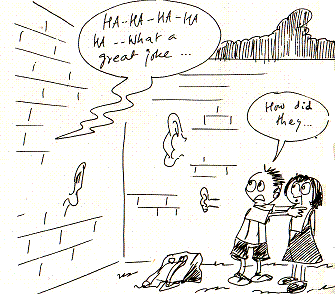 HA--HA-HA-HA
HA--What a
great joke ...
How did
they...